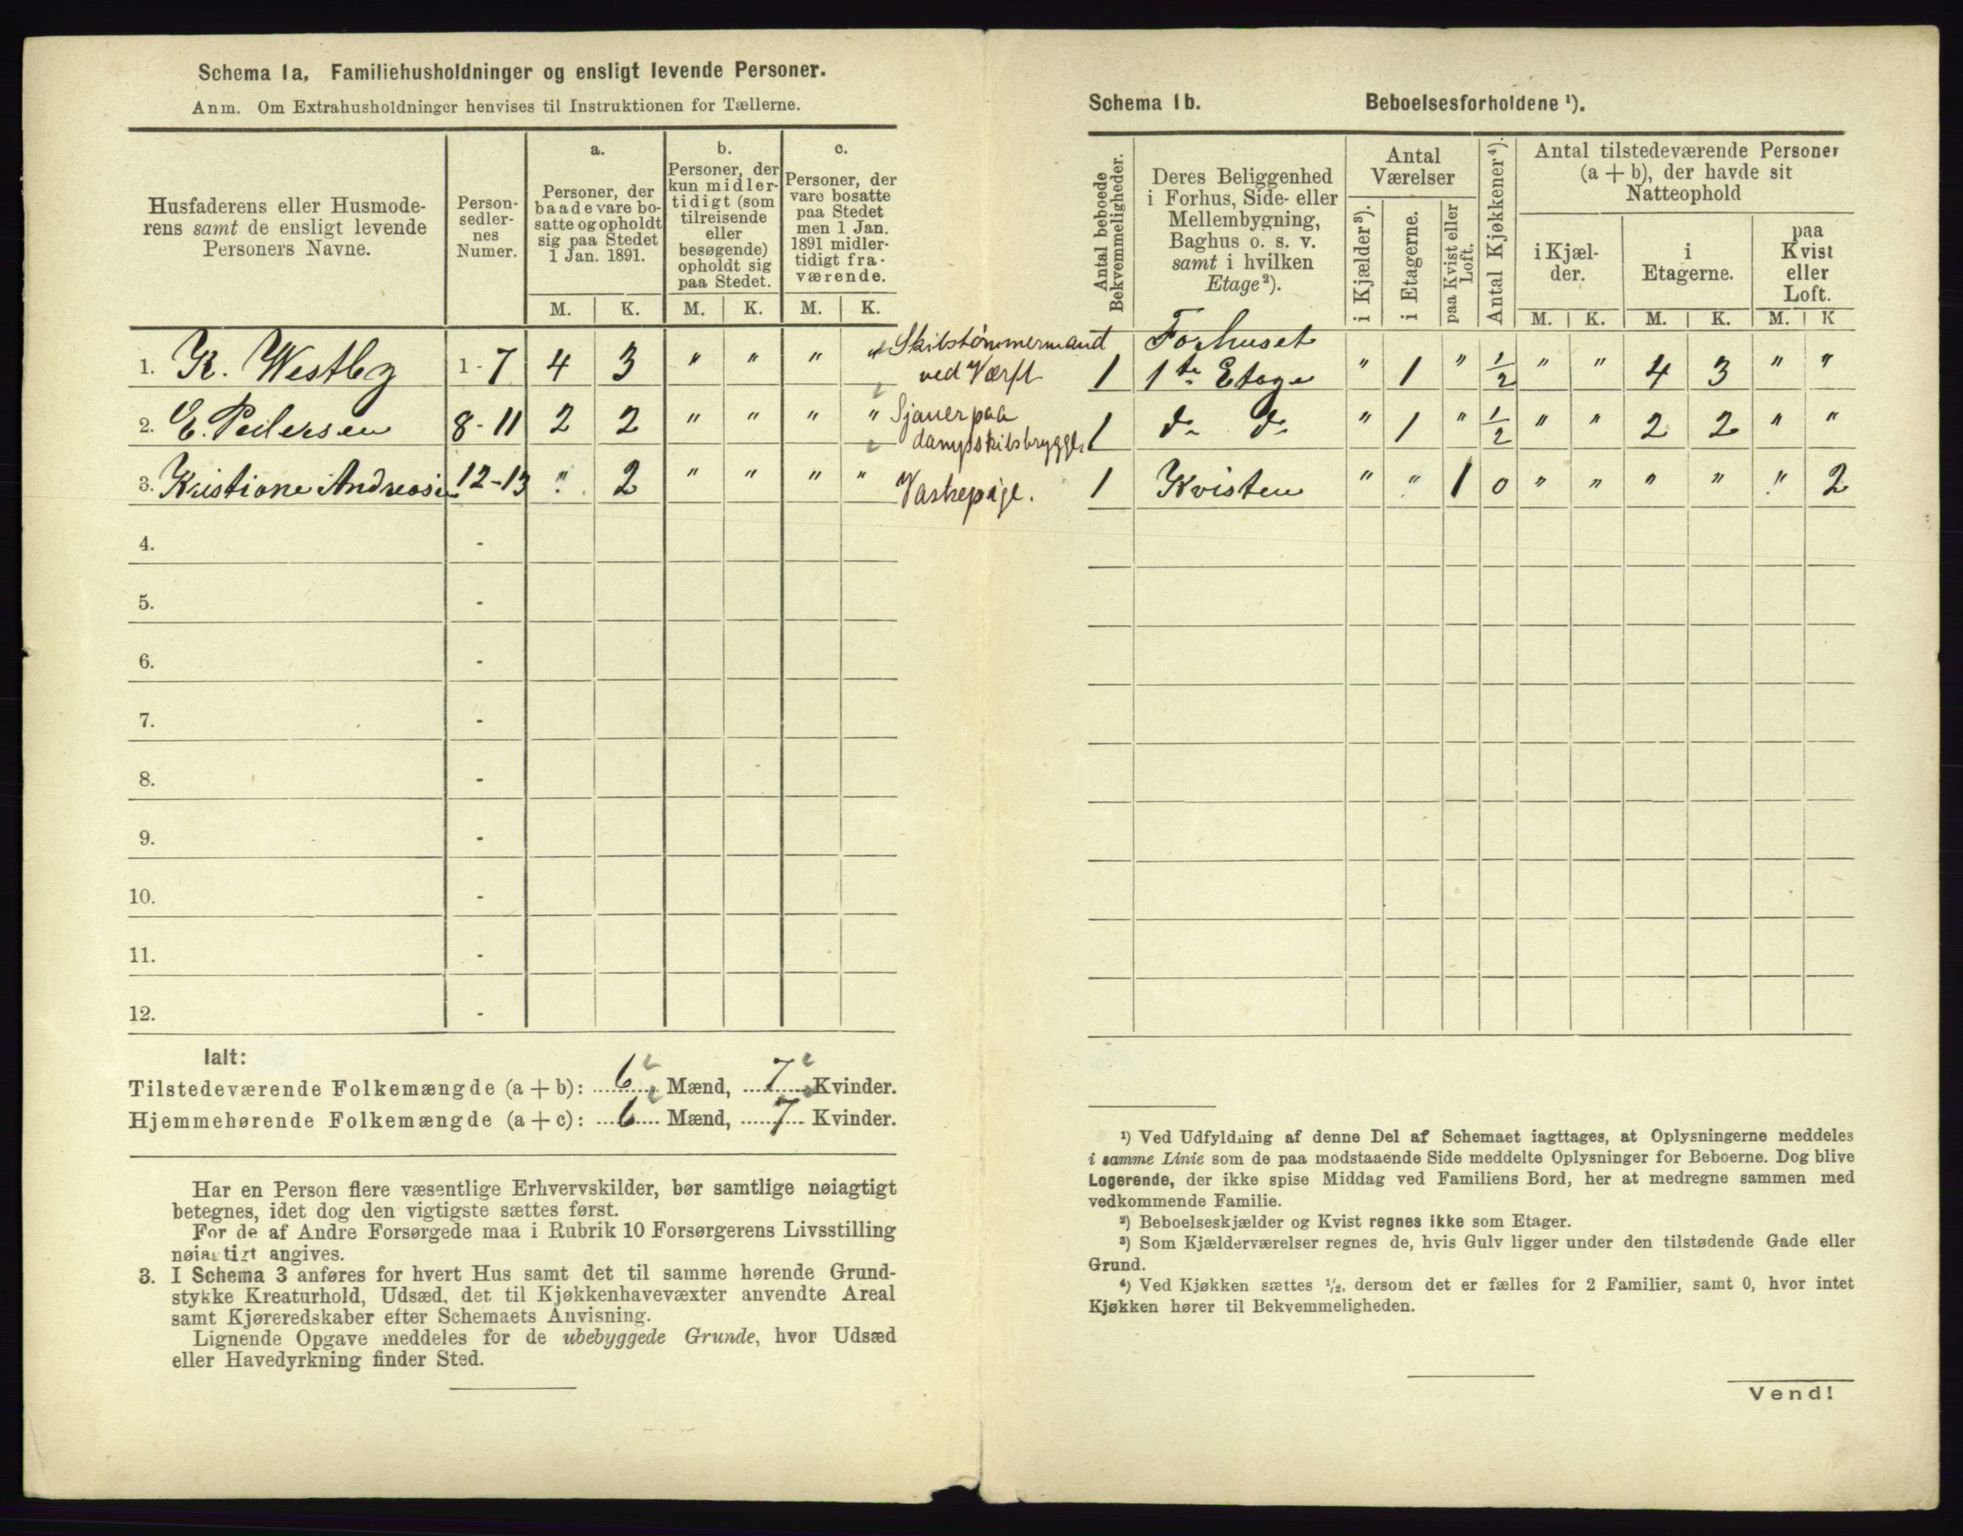 Schema 1a, Familiehusholdninger og ensligt levende Personer.
Anm. Om Extrahusholdninger henvises til Instruktionen for Tællerne.
Husfaderens eller Husmode-
rens samt de ensligt levende
Personers Navne.
Person-
sedler-
nes
Numer.
a.
Personer, der
baade vare bo-
satte og opholdt
sig paa Stedet
1 Jan. 1891.
b.
Personer, der
kun midler-
tidigt (som
tilreisende
eller
besøgende)
opholdt sig
paa Stedet.
c.
Personer, der
vare bosatte
paa Stedet
men 1 Jan.
1891 midler-
tidigt fra-
værende.
M. K. M. K. M. K.
1. K. Westby 1-7 4 3 " " " " Skibstømmermand
ved Værft
2. E. Pedersen 8-11 2 2 " " " " Sjauer paa
dampskibsbrygge
3. Kristiane Andreasen 12-13 " 2 " " " " Vaskepige.
4. -
5. -
6. -
7. -
8. -
9. -
10. -
11. -
12. -
Ialt:
Tilstedeværende Folkemængde (a + b): 6 Mænd, 7 Kvinder.
Hjemmehørende Folkemængde (a + c): 6 Mænd, 7 Kvinder.
Har en Person flere væsentlige Erhvervskilder, bør samtlige nøiagtigt
betegnes, idet dog den vigtigste sættes først.
For de af Andre Forsørgede maa i Rubrik 10 Forsørgerens Livsstilling
nøiagtigt angives.
3. I Schema 3 anføres for hvert Hus samt det til samme hørende Grund-
stykke Kreaturhold, Udsæd, det til Kjøkkenhavevæxter anvendte Areal
samt Kjøreredskaber efter Schemaets Anvisning.
Lignende Opgave meddeles for de ubebyggede Grunde, hvor Udsæd
eller Havedyrkning finder Sted.
Schema 1b. Beboelsesforholdene ¹).
Antal beboede
Bekvemmeligheder.
Deres Beliggenhed
i Forhus, Side- eller
Mellembygning,
Baghus o. s. v.
samt i hvilken
Etage ²).
Antal
Værelser
i Kjælder ³).
i Etagerne.
paa Kvist eller
Loft.
Antal Kjøkkener ⁴).
Antal tilstedeværende Personer
(a + b), der havde sit
Natteophold
i Kjæl-
der.
i
Etagerne.
paa
Kvist
eller
Loft.
M. K. M. K. M. K
Forhuset
1 1te Etage " 1 " ½ " " 4 3 " "
1 do do " 1 " ½ " " 2 2 " "
1 Kvisten " " 1 0 " " " " " 2
¹) Ved Udfyldning af denne Del af Schemaet iagttages, at Oplysningerne meddeles
i samme Linie som de paa modstaaende Side meddelte Oplysninger for Beboerne. Dog blive
Logerende, der ikke spise Middag ved Familiens Bord, her at medregne sammen med
vedkommende Familie.
²) Beboelseskjælder og Kvist regnes ikke som Etager.
³) Som Kjælderværelser regnes de, hvis Gulv ligger under den tilstødende Gade eller
Grund.
⁴) Ved Kjøkken sættes ½, dersom det er fælles for 2 Familier, samt 0, hvor intet
Kjøkken hører til Bekvemmeligheden.
Vend!